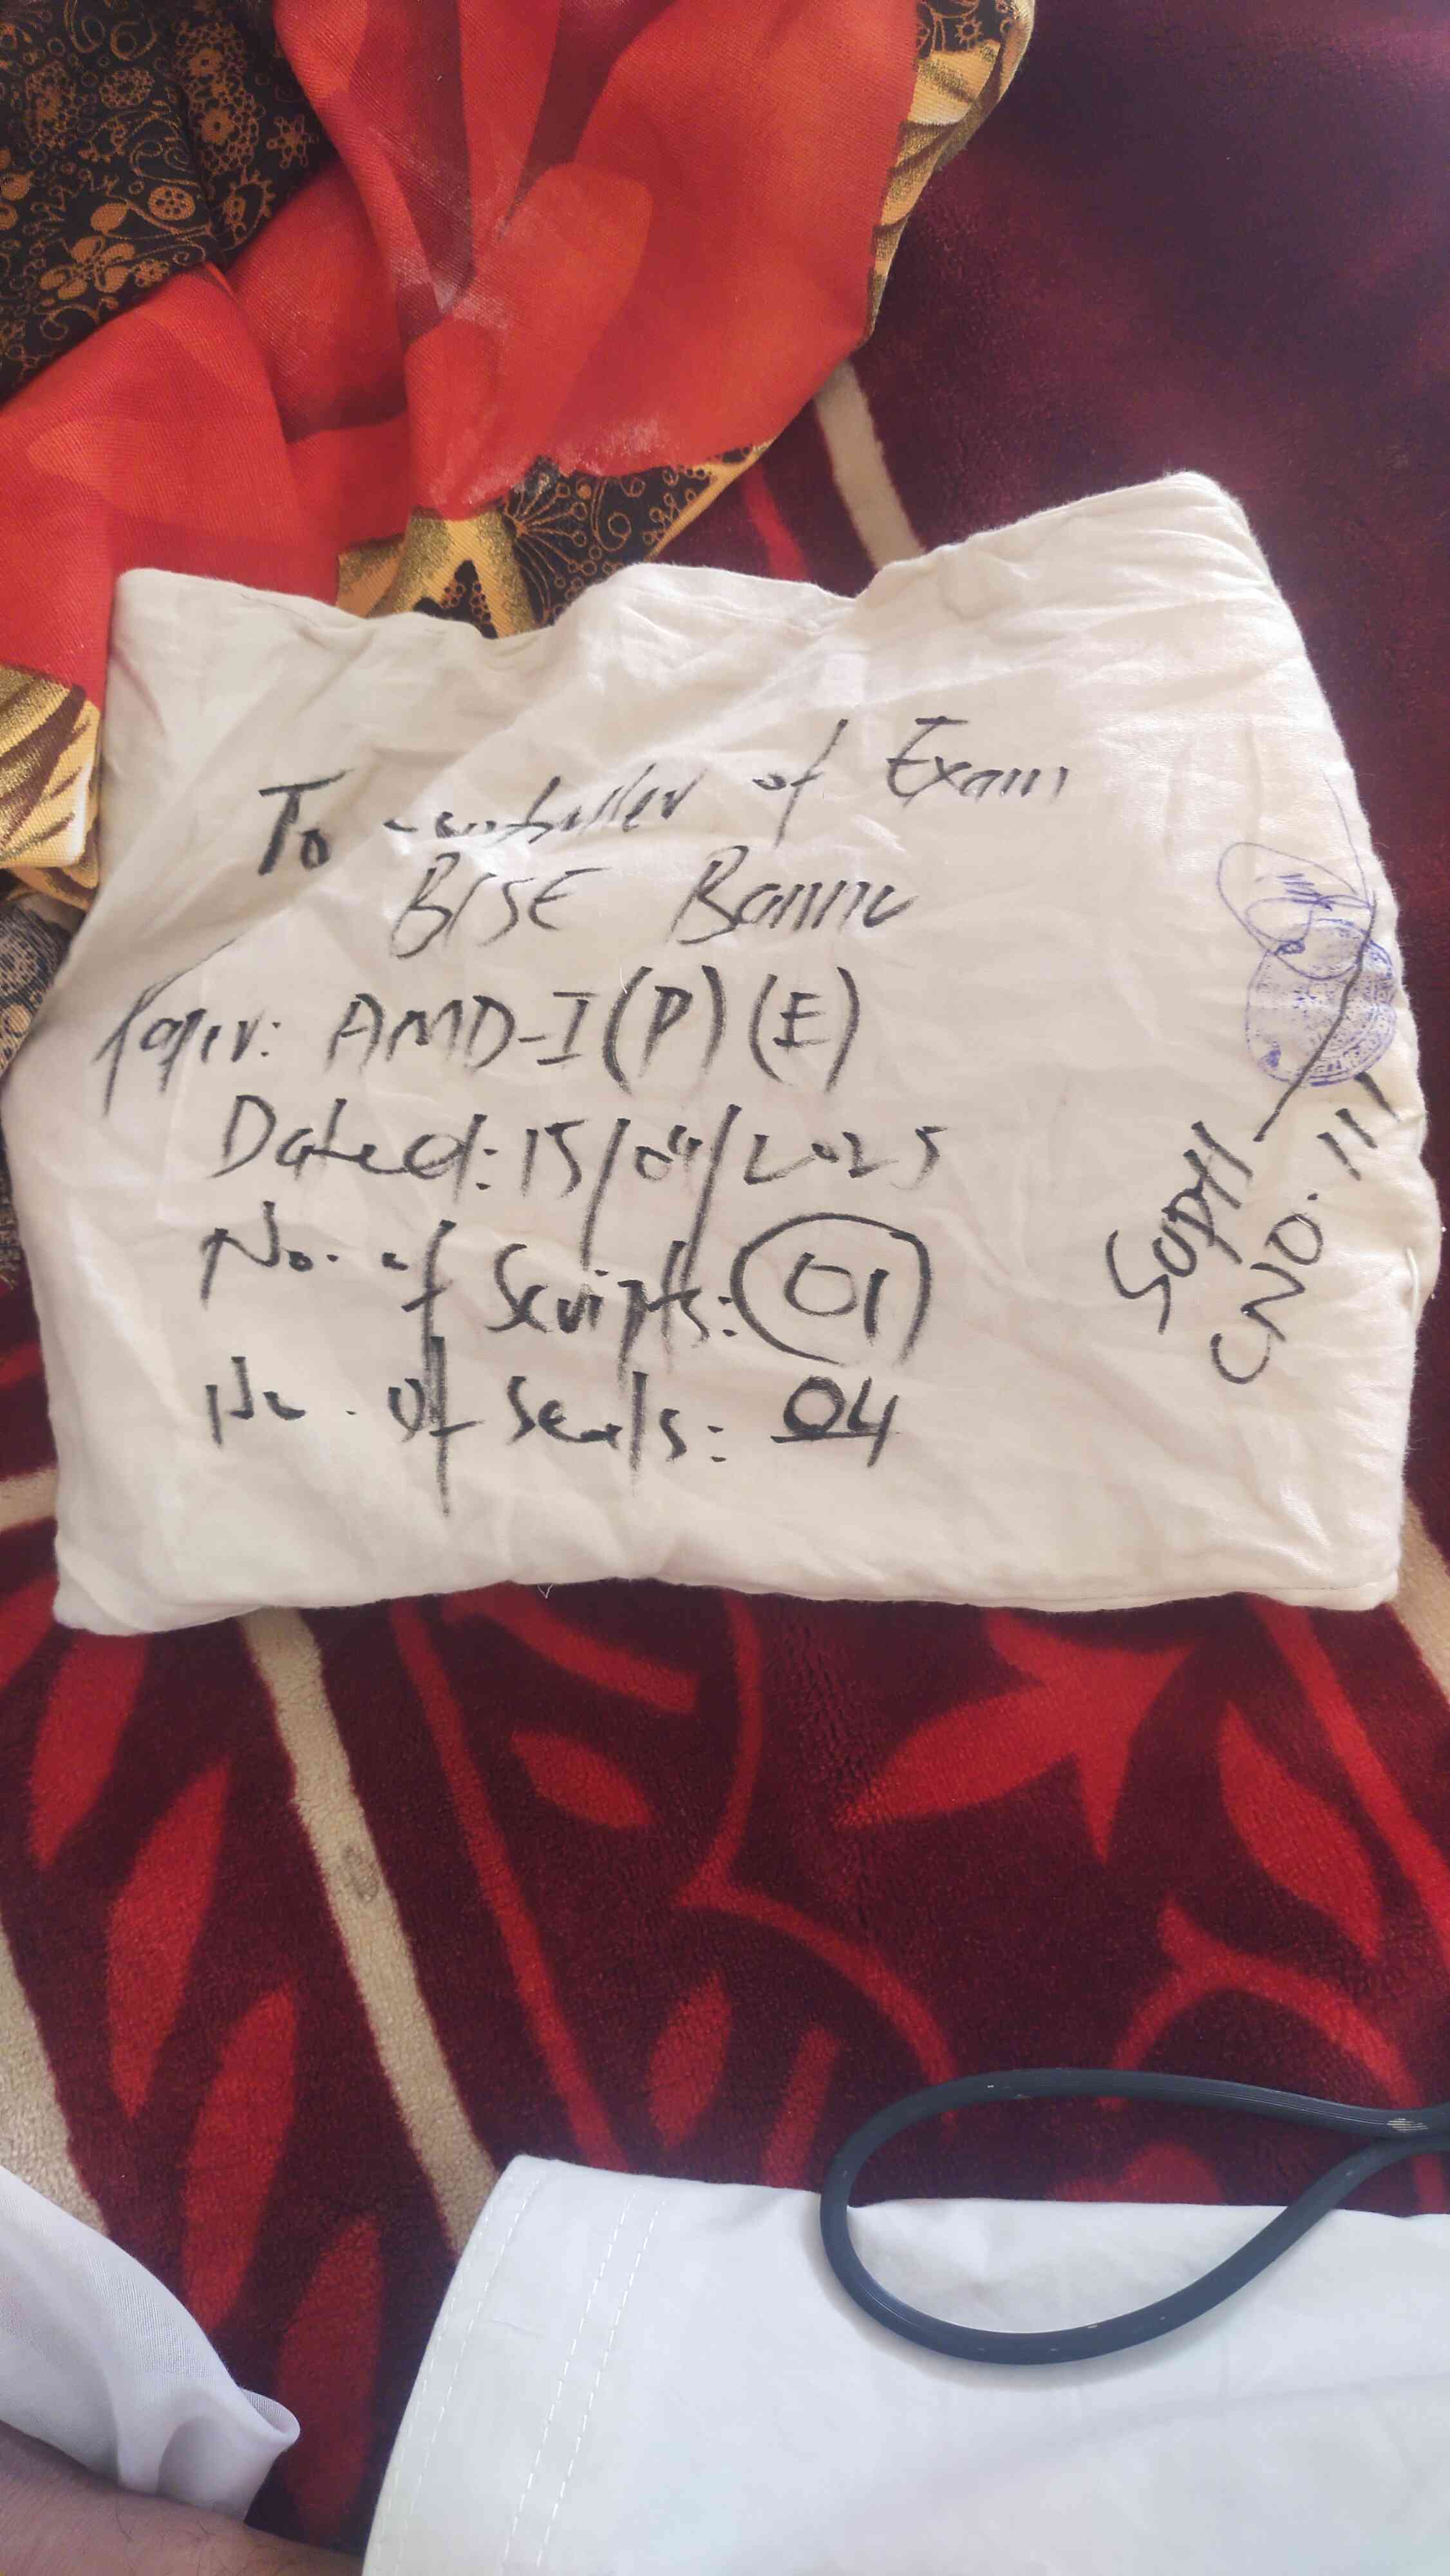 To controller of Exam
BISE Bannu
Paper: AMD-I(P)(E)
Dated: 15/04/2025
No. of Scripts: 01
No. of Seals: 04
Supdt
CNO. 111